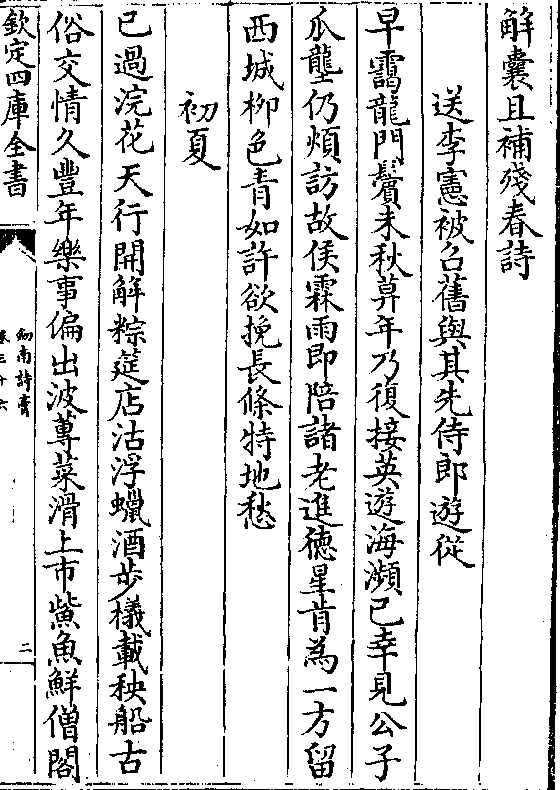 解囊且補殘春詩
送李憲被召舊與其先侍郎遊從
早靄龍門鬢未秋莫年乃復接英遊海瀕已幸見公子
瓜壟仍煩訪故侯霖雨即陪諸老進德星肯為一方留
西城柳色青如許欲挽長條特地愁
初夏
已過浣花天行開解粽筵店沽浮蠟酒步檥載秧船古
俗交情久豐年樂事偏出波蓴菜滑上市鮆魚鮮僧閣
欽定四庫全書
劍南詩膏
卷三十六
二